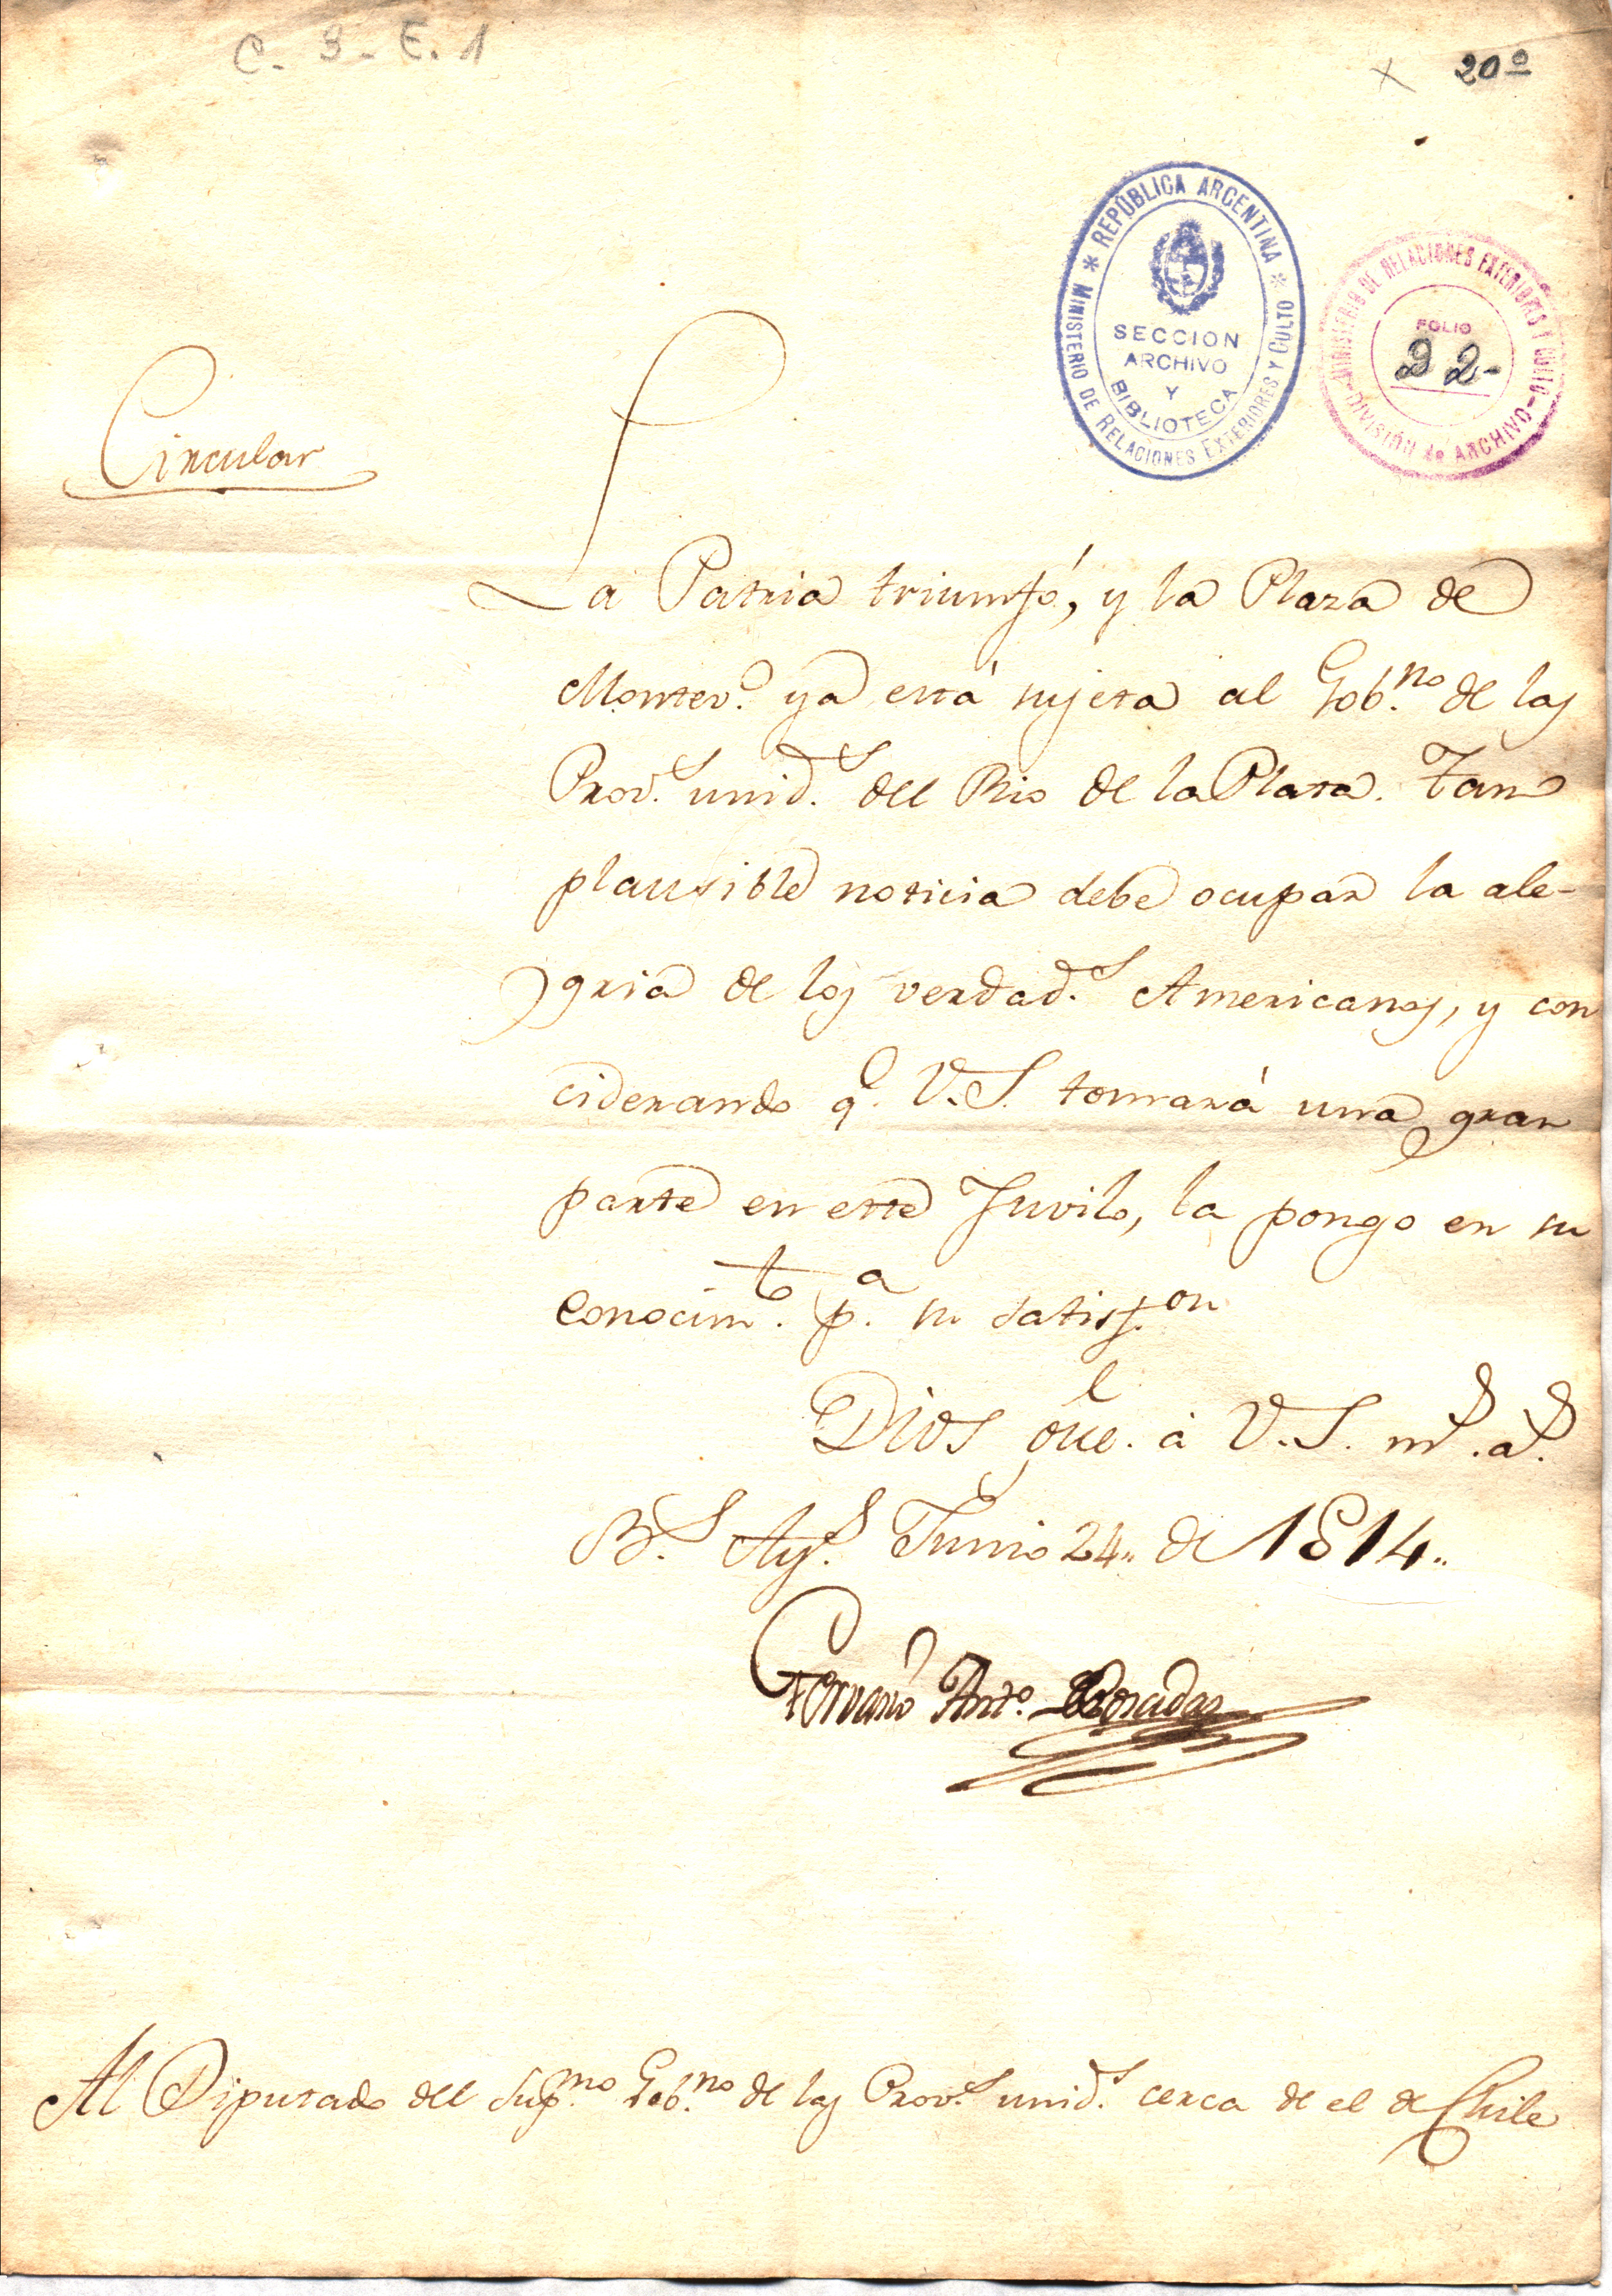 C. 3 - E. 1
X 20º
* REPÚBLICA ARGENTINA *
MINISTERIO DE RELACIONES EXTERIORES Y CULTO
SECCION
ARCHIVO
Y
BIBLIOTECA
MINISTERIO DE RELACIONES EXTERIORES Y CULTO
DIVISIÓN de ARCHIVO
FOLIO
22-
Circular
La Patria triumfó, y la Plaza de
Montev.º ya está sujeta al Gob.no de las
Prov.s unid.s del Rio de la Plata. Tan
plausible noticia debe ocupar la ale-
gria de los verdad.s Americanos, y con
ciderando q.e V.S. tomará una gran
parte en este Juvilo, la pongo en su
conocim.to p.a su satisf.on
Dios gue. à V.S. m.s a.s
B.s Ay.s Junio 24,, de 1814,,
Gervasio Ant.º Posadas
Al Diputado del Sup.mo Gob.no de las Prov.s unid.s cerca de el de Chile